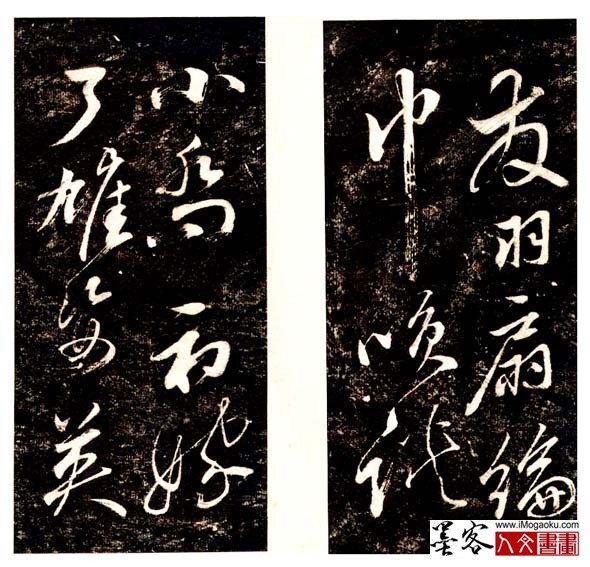 小喬初嫁
了雄姿英
發羽扇綸
巾咲談
墨客
www.iMogaoku.com
人文書畫